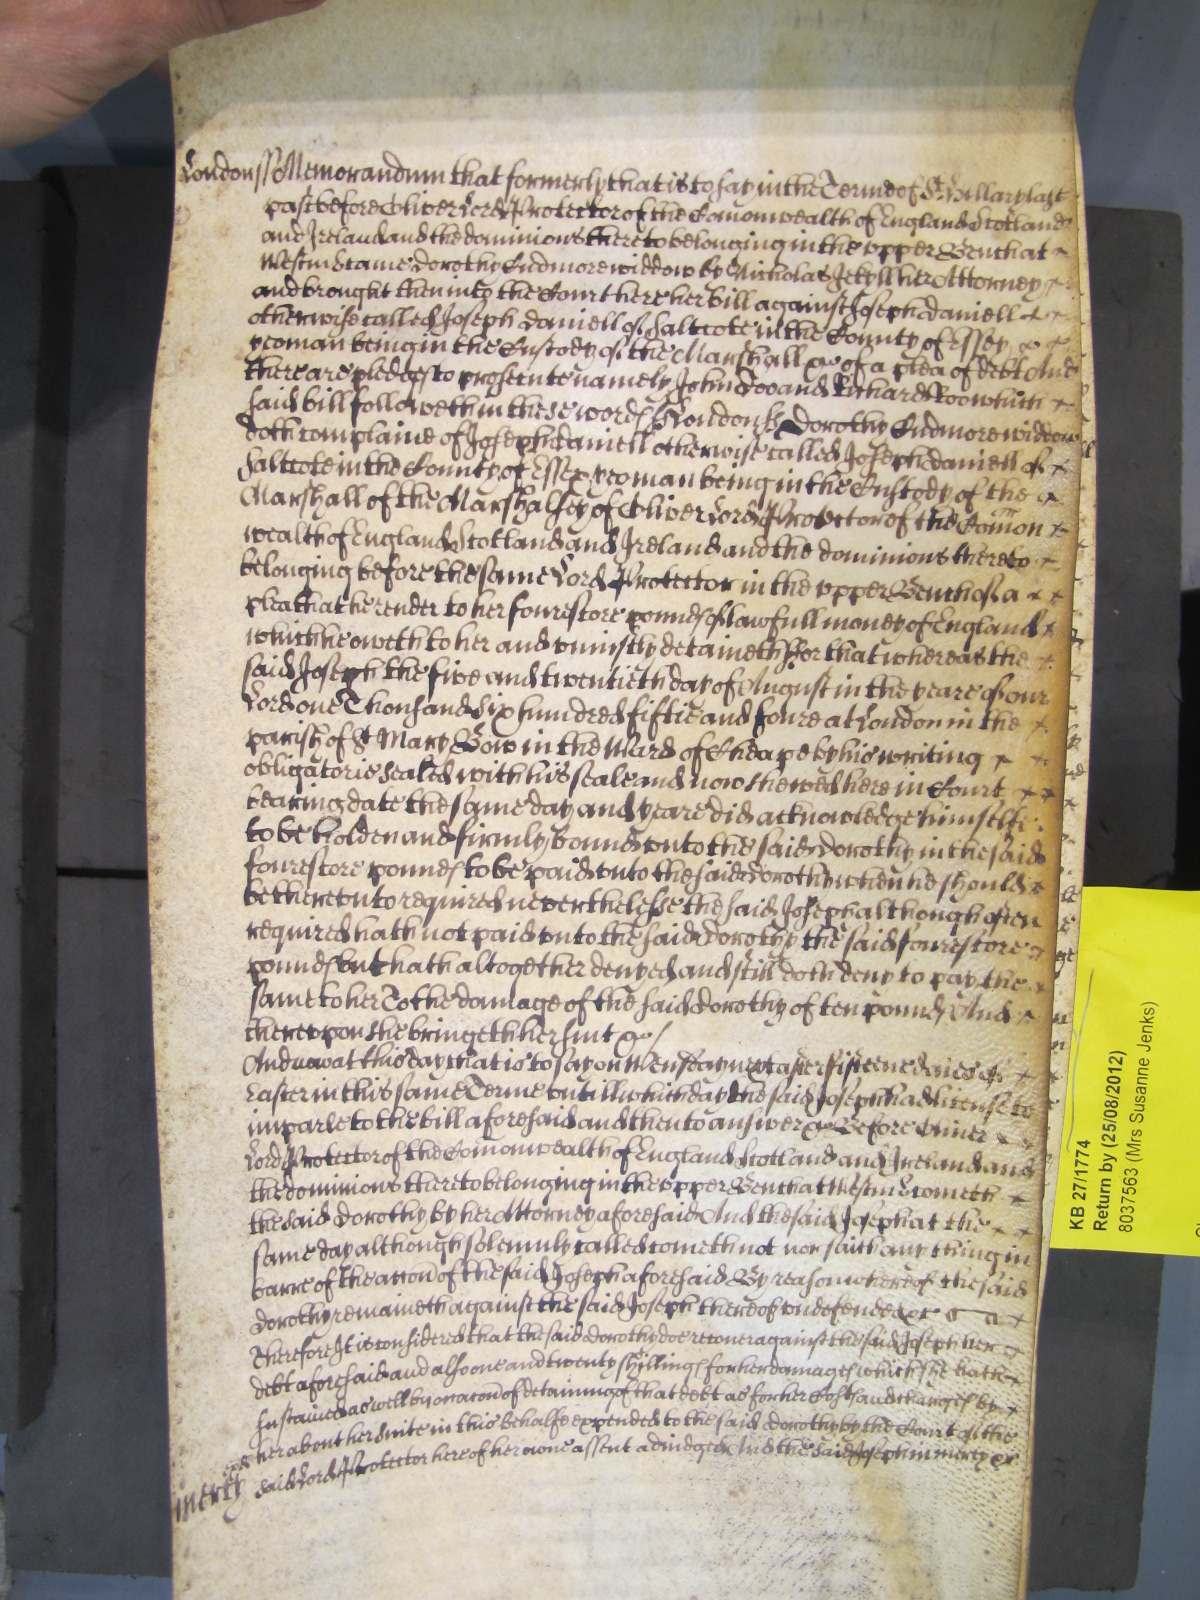 London ss Memorandum that formerly that is to say in the Terme of St Hillary last
past before Oliver Lord Protector of the Comonwealth of England Scotland
and Ireland and the dominions thereto belonging in the upper Bench at
Westm came Dorothy Cudmore widdow by Nicholas Jekyll her Attorney
and brought then into the Court here her bill against Joseph Daniell
otherwise called Joseph Daniell of Saltcote in the County of Essex
yeoman being in the Custody of the Marshall &c of a plea of debt And
there are pledges to prosecute namely John Doo and Richard Roo which
said bill followeth in these words ss London ss Dorothy Cudmore widdow
doth complaine of Joseph Daniell otherwise called Joseph Daniell of
Saltcote in the County of Essex yeoman being in the Custody of the
Marshall of the Marshalsey of Oliver Lord Protector of the Comon
wealth of England Scotland and Ireland and the dominions thereto
belonging before the same Lord Protector in the upper Bench of a
plea that he render to her fourescore pounds of lawfull money of England
which he oweth to her and uniustly detaineth For that whereas the
said Joseph the five and twentieth day of August in the yeare of our
Lord one Thousand Six hundred fiftie and foure at London in the
parish of St Mary Bow in the Ward of Cheape by his writing
obligatorie sealed with his seale and now shewed here in Court
bearing date the same day and yeare did acknowledge himselfe
to be holden and firmly bound unto the said Dorothy in the said
fourescore pounds to be paid unto the said Dorothy when he should
be thereunto required neverthelesse the said Joseph although often
required hath not paid unto the said Dorothy the said fourescore
pounds but hath altogether denyed and still doth deny to pay the
same to her To the damage of the said Dorothy of ten pounds And
thereupon she bringeth her suit &c
And now at this day that is to say on Wensday next after fifteene daies of
Easter in this same Terme untill which day the said Joseph had license to
imparle to the bill aforesaid and then to answer &c Before Oliver
Lord Protector of the Comonwealth of England Scotland and Ireland and
the dominions thereto belonging in the upper Bench at Westm Cometh
the said Dorothy by her Attorney aforesaid And the said Joseph at the
same day although solemnly called cometh not nor saith any thing in
barre of the accon of the said Joseph aforesaid By reason whereof the said
Dorothy remaineth against the said Joseph thereof undefended &c
Therefore It is considered that the said Dorothy doe recover against the said Joseph her
debt aforesaid and also one and twenty shillings for her damages which she hath
sustained as well by occacon of detaining of that debt as for her Costs and charges by
her about her suite in this behalfe expended to the said Dorothy by the Court of the
said Lord Protector here of her owne assent adiudged And the said Joseph in mercy &c
mercy
KB 27/1774
Return by (25/08/2012)
8037563 (Mrs Susanne Jenks)